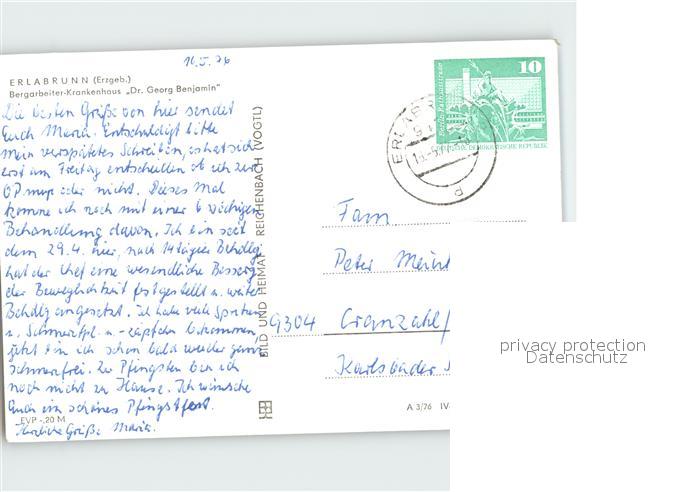 16.5.76
ERLABRUNN (Erzgeb.)
Bergarbeiter-Krankenhaus „Dr. Georg Benjamin"
Die besten Grüße von hier sendet
Euch Maria. Entschuldigt bitte
mein verspätetes Schreiben, es hat sich
erst am Freitag entschieden ob ich zur
OP muß oder nicht. Dieses Mal
komme ich noch mit einer 6 wöchigen
Behandlung davon. Ich bin seit
dem 29.4. hier, nach 14 tägier Behdlg.
hat der Chef eine wesendliche Besserg.
der Beweglichkeit festgestellt u. weitere
Behdlg angesetzt. Ich habe viele Spritzen
u. Schmerztbl. u. -zäpfchen bekommen,
jetzt bin ich schon bald wieder ganz
schmerzfrei. Zu Pfingsten bin ich
noch nicht zu Hause. Ich wünsche
Euch ein schönes Pfingstfest.
EVP -,20 M
Herzliche Grüße Maria.
BILD UND HEIMAT REICHENBACH (VOGTL)
10
DEUTSCHE DEMOKRATISCHE REPUBLIK
Fam
Peter
9304 Cranzahl/
Karlsbader
A 3/76 IV-
privacy protection
Datenschutz